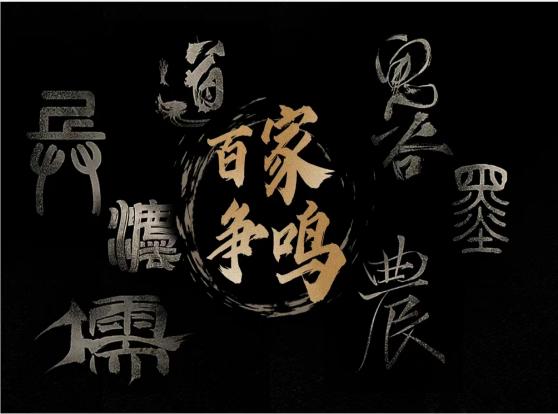 道
鬼谷
兵
百家
争鸣
墨
灋
儒
農